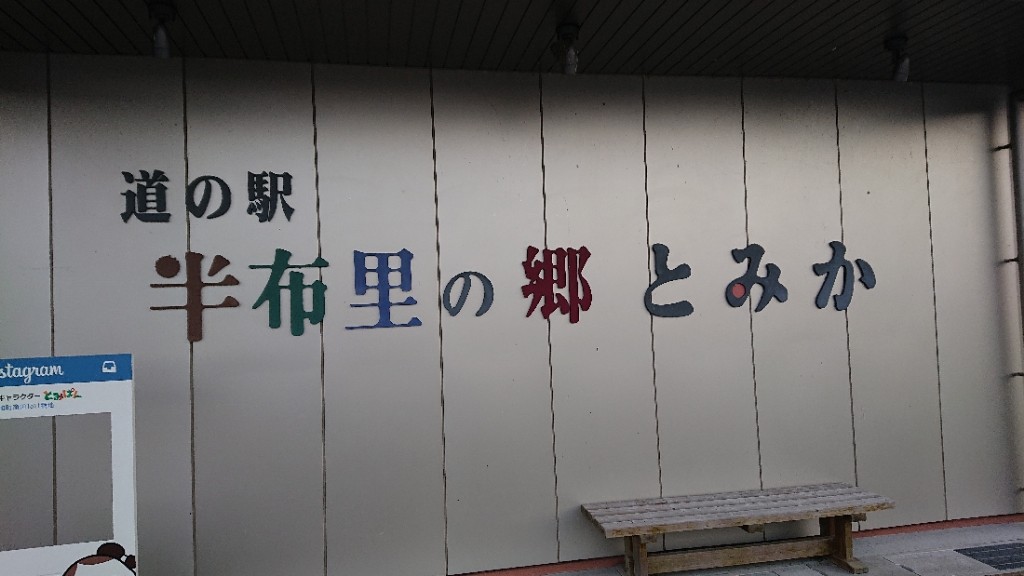 道の駅
半布里の郷 とみか
stagram
キャラクター とみぱん